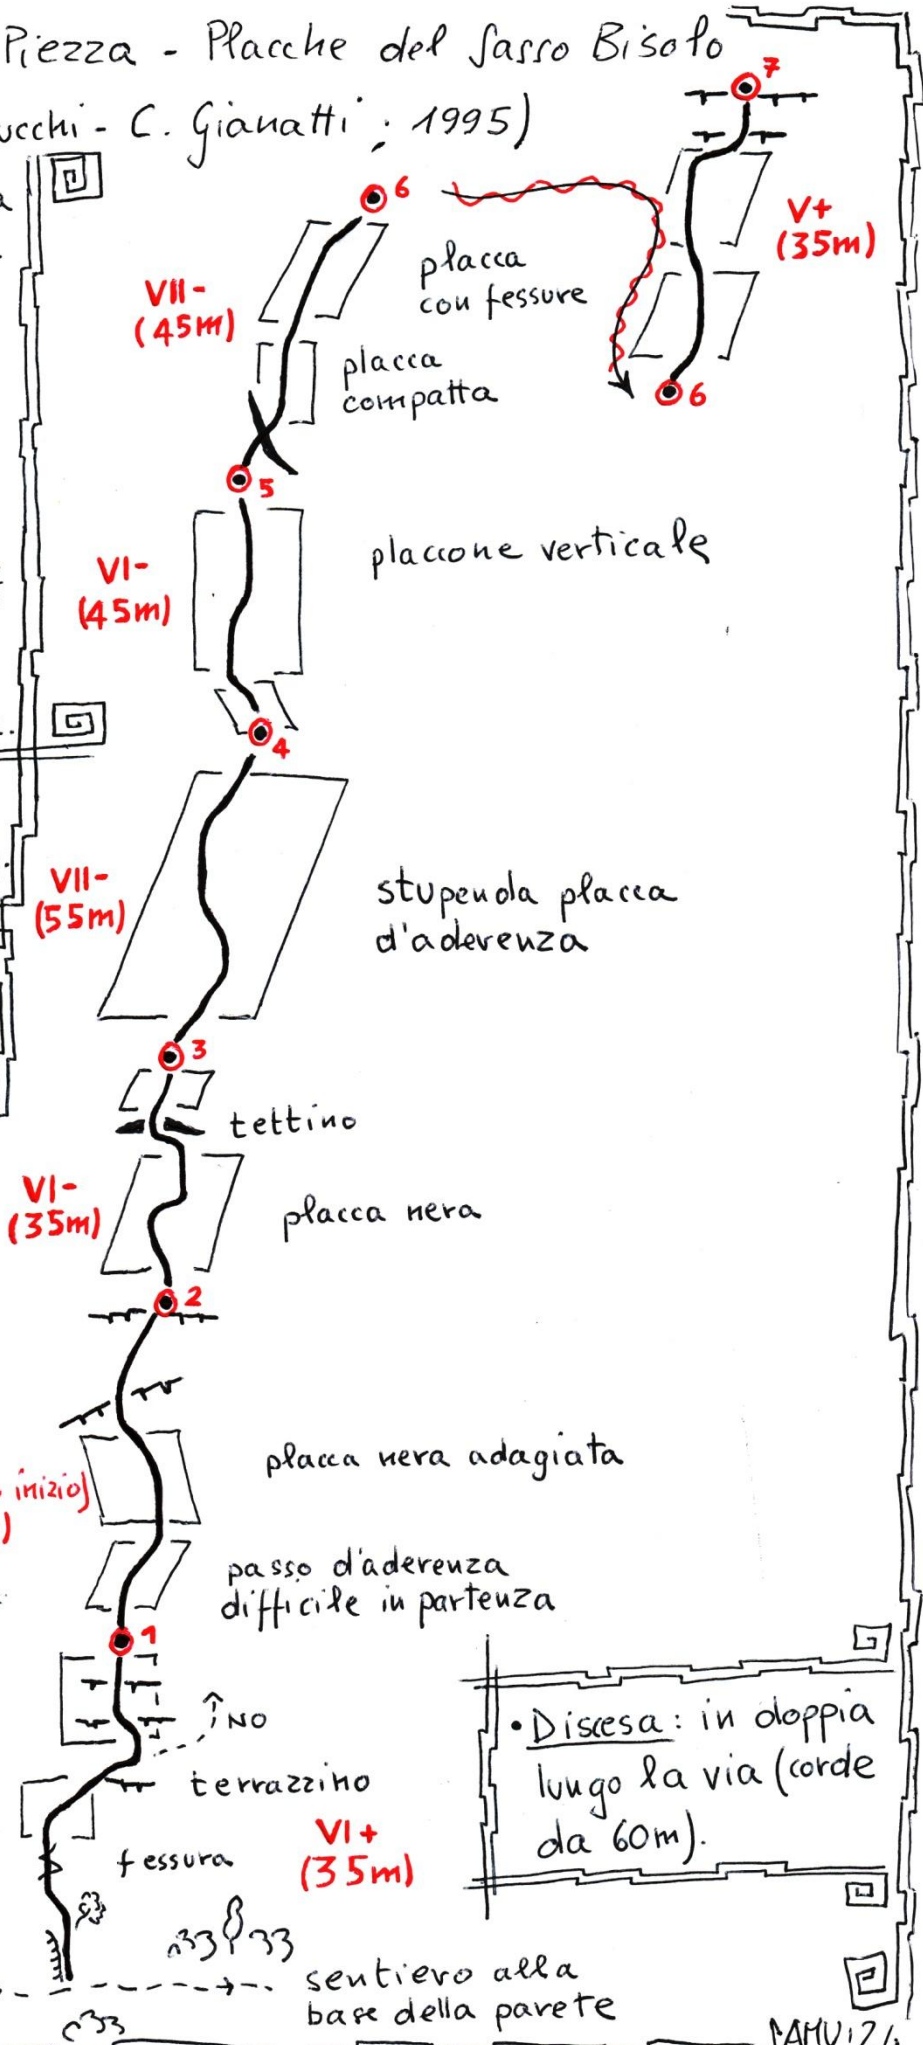 Piezza - Placche del Sasso Bisolo
ucchi - C. Gianatti ; 1995)
7
V+
(35m)
6
6
placca
con fessure
VII-
(45m)
placca
compatta
5
placcone verticale
VI-
(45m)
4
VII-
(55m)
stupenda placca
d'aderenza
3
tettino
VI-
(35m)
placca nera
2
placca nera adagiata
inizio)
)
passo d'aderenza
difficile in partenza
1
NO
terrazzino
fessura
VI+
(35m)
• Discesa: in doppia
lungo la via (corde
da 60m).
sentiero alla
base della parete